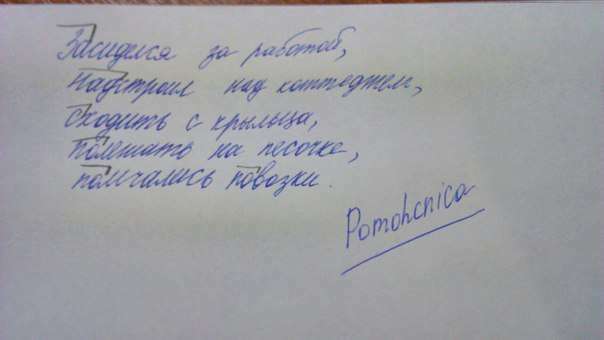 Засиделся за работой,
Надстроил над коттеджем,
Сходить с крыльца,
Полежать на песочке,
помчались повозки.
Pomohcnica